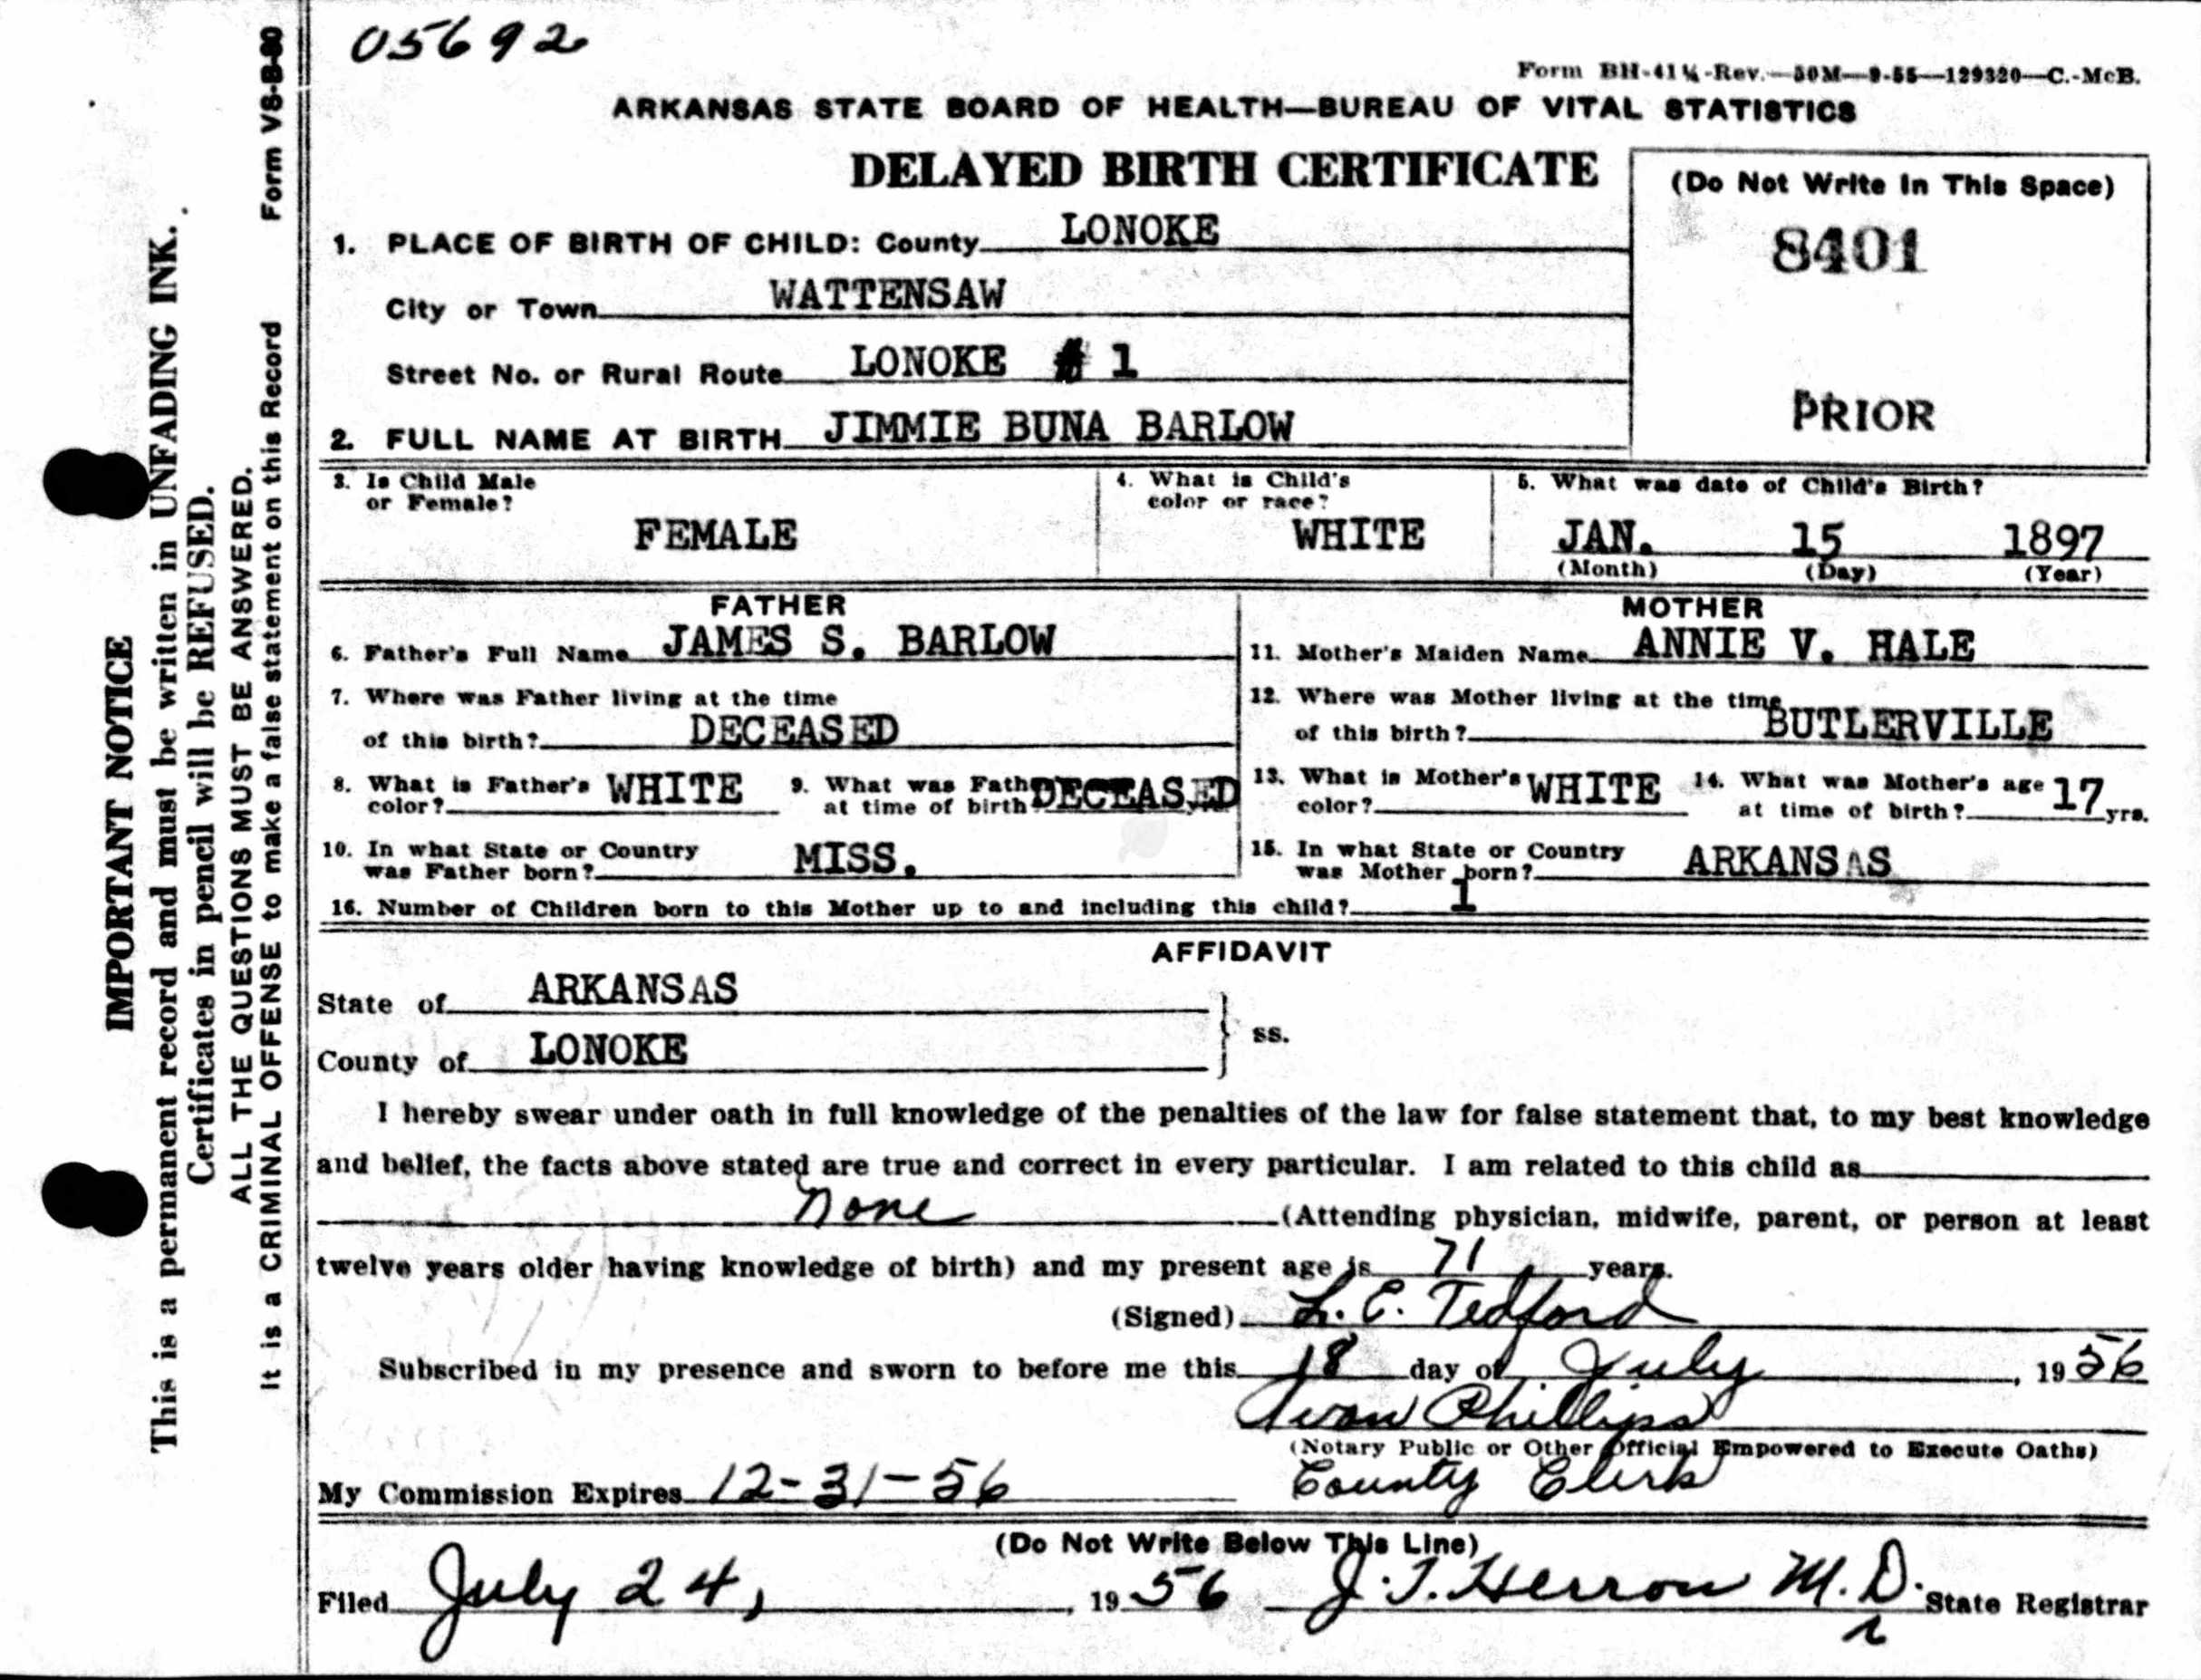 05692
Form BH-41¼-Rev.—50M—9-55—129320—C.-McB.
ARKANSAS STATE BOARD OF HEALTH—BUREAU OF VITAL STATISTICS
DELAYED BIRTH CERTIFICATE
(Do Not Write In This Space)
8401
PRIOR
1. PLACE OF BIRTH OF CHILD: County LONOKE
City or Town WATTENSAW
Street No. or Rural Route LONOKE # 1
2. FULL NAME AT BIRTH JIMMIE BUNA BARLOW
3. Is Child Male or Female?
FEMALE
4. What is Child's color or race?
WHITE
5. What was date of Child's Birth?
JAN. 15 1897
(Month) (Day) (Year)
FATHER
6. Father's Full Name JAMES S. BARLOW
7. Where was Father living at the time
of this birth? DECEASED
8. What is Father's color? WHITE 9. What was Fath at time of birth DECEASED
10. In what State or Country was Father born? MISS.
MOTHER
11. Mother's Maiden Name ANNIE V. HALE
12. Where was Mother living at the time
of this birth? BUTLERVILLE
13. What is Mother's color? WHITE 14. What was Mother's age at time of birth? 17 yrs.
15. In what State or Country was Mother born? ARKANSAS
16. Number of Children born to this Mother up to and including this child? 1
AFFIDAVIT
State of ARKANSAS
ss.
County of LONOKE
I hereby swear under oath in full knowledge of the penalties of the law for false statement that, to my best knowledge
and belief, the facts above stated are true and correct in every particular. I am related to this child as
none (Attending physician, midwife, parent, or person at least
twelve years older having knowledge of birth) and my present age is 71 years.
(Signed) L. E. Tedford
Subscribed in my presence and sworn to before me this 18 day of July, 1956
Ivan Phillips
(Notary Public or Other Official Empowered to Execute Oaths)
My Commission Expires 12-31-56 County Clerk
(Do Not Write Below This Line)
Filed July 24, , 1956 J.T. Herron M.D. State Registrar
IMPORTANT NOTICE
This is a permanent record and must be written in UNFADING INK.
Certificates in pencil will be REFUSED.
ALL THE QUESTIONS MUST BE ANSWERED.
It is a CRIMINAL OFFENSE to make a false statement on this Record Form VS-B-80